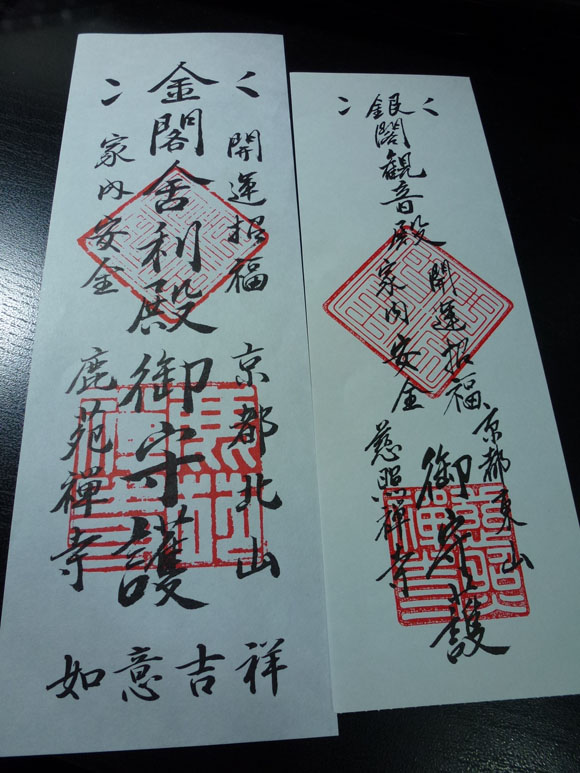 開運招福 京都北山
金閣舎利殿 御守護
家内安全 鹿苑禅寺
如意吉祥
開運招福 京都東山
銀閣観音殿 御守護
家内安全 慈照禅寺